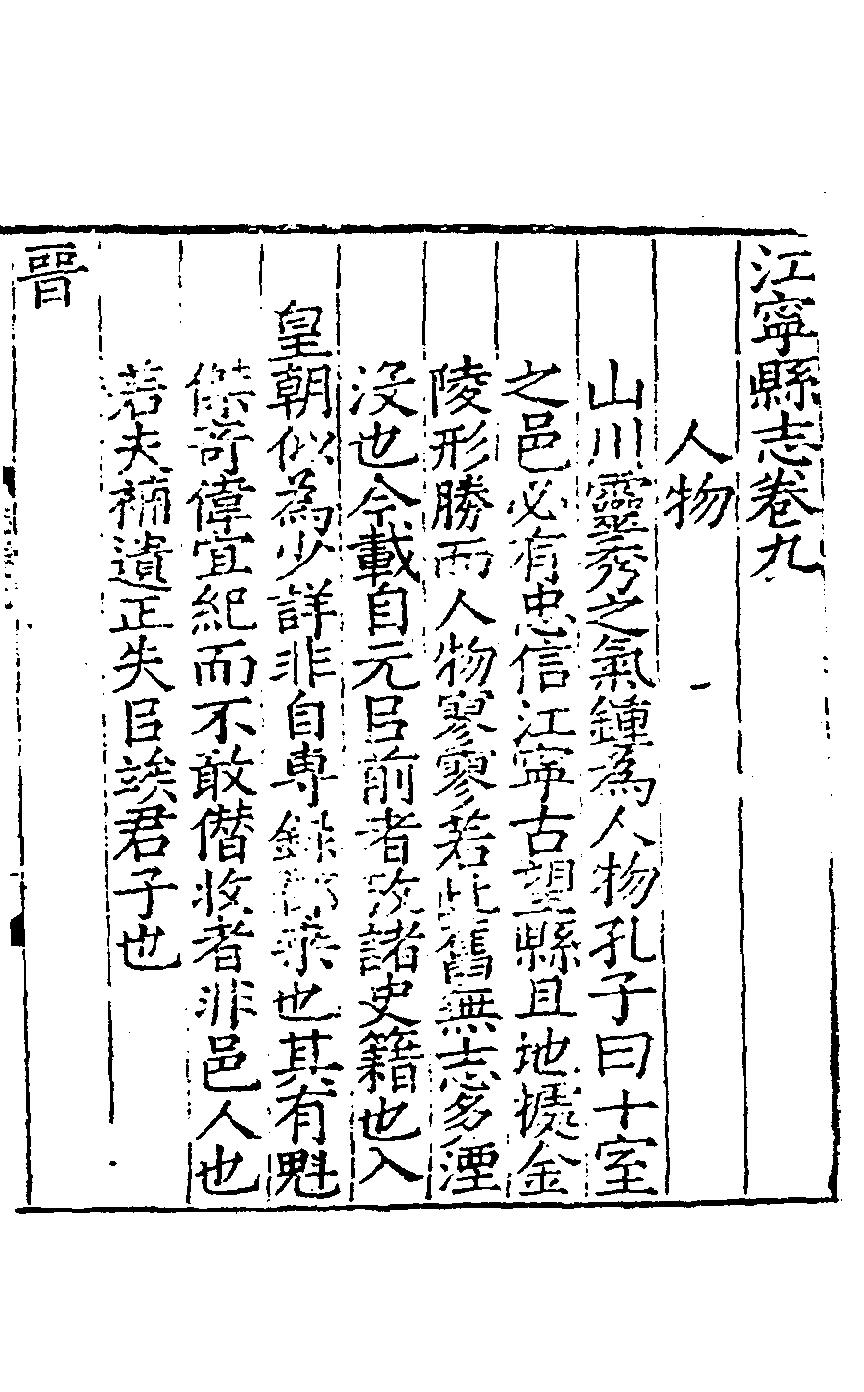 江寧縣志卷九
人物
山川靈秀之氣鍾為人物孔子曰十室
之邑必有忠信江寧古望縣且地據金
陵形勝而人物寥寥若此舊無志多湮
沒也今載自元㠯前者攷諸史籍也入
皇朝似為少詳非自專錄郡乘也其有魁
傑奇偉宜紀而不敢僭收者非邑人也
若夫補遺正失㠯竢君子也
晉